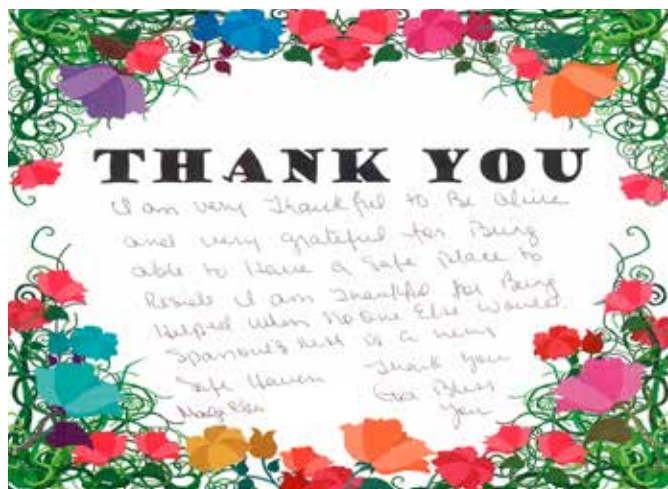 THANK YOU
I am very Thankful to Be alive
and very grateful for Being
able to Have a Safe Place to
Reside I am Thankful for Being
Helped when No One Else Would.
Sparrow's Nest is a
Safe Haven Thank You
God Bless
You